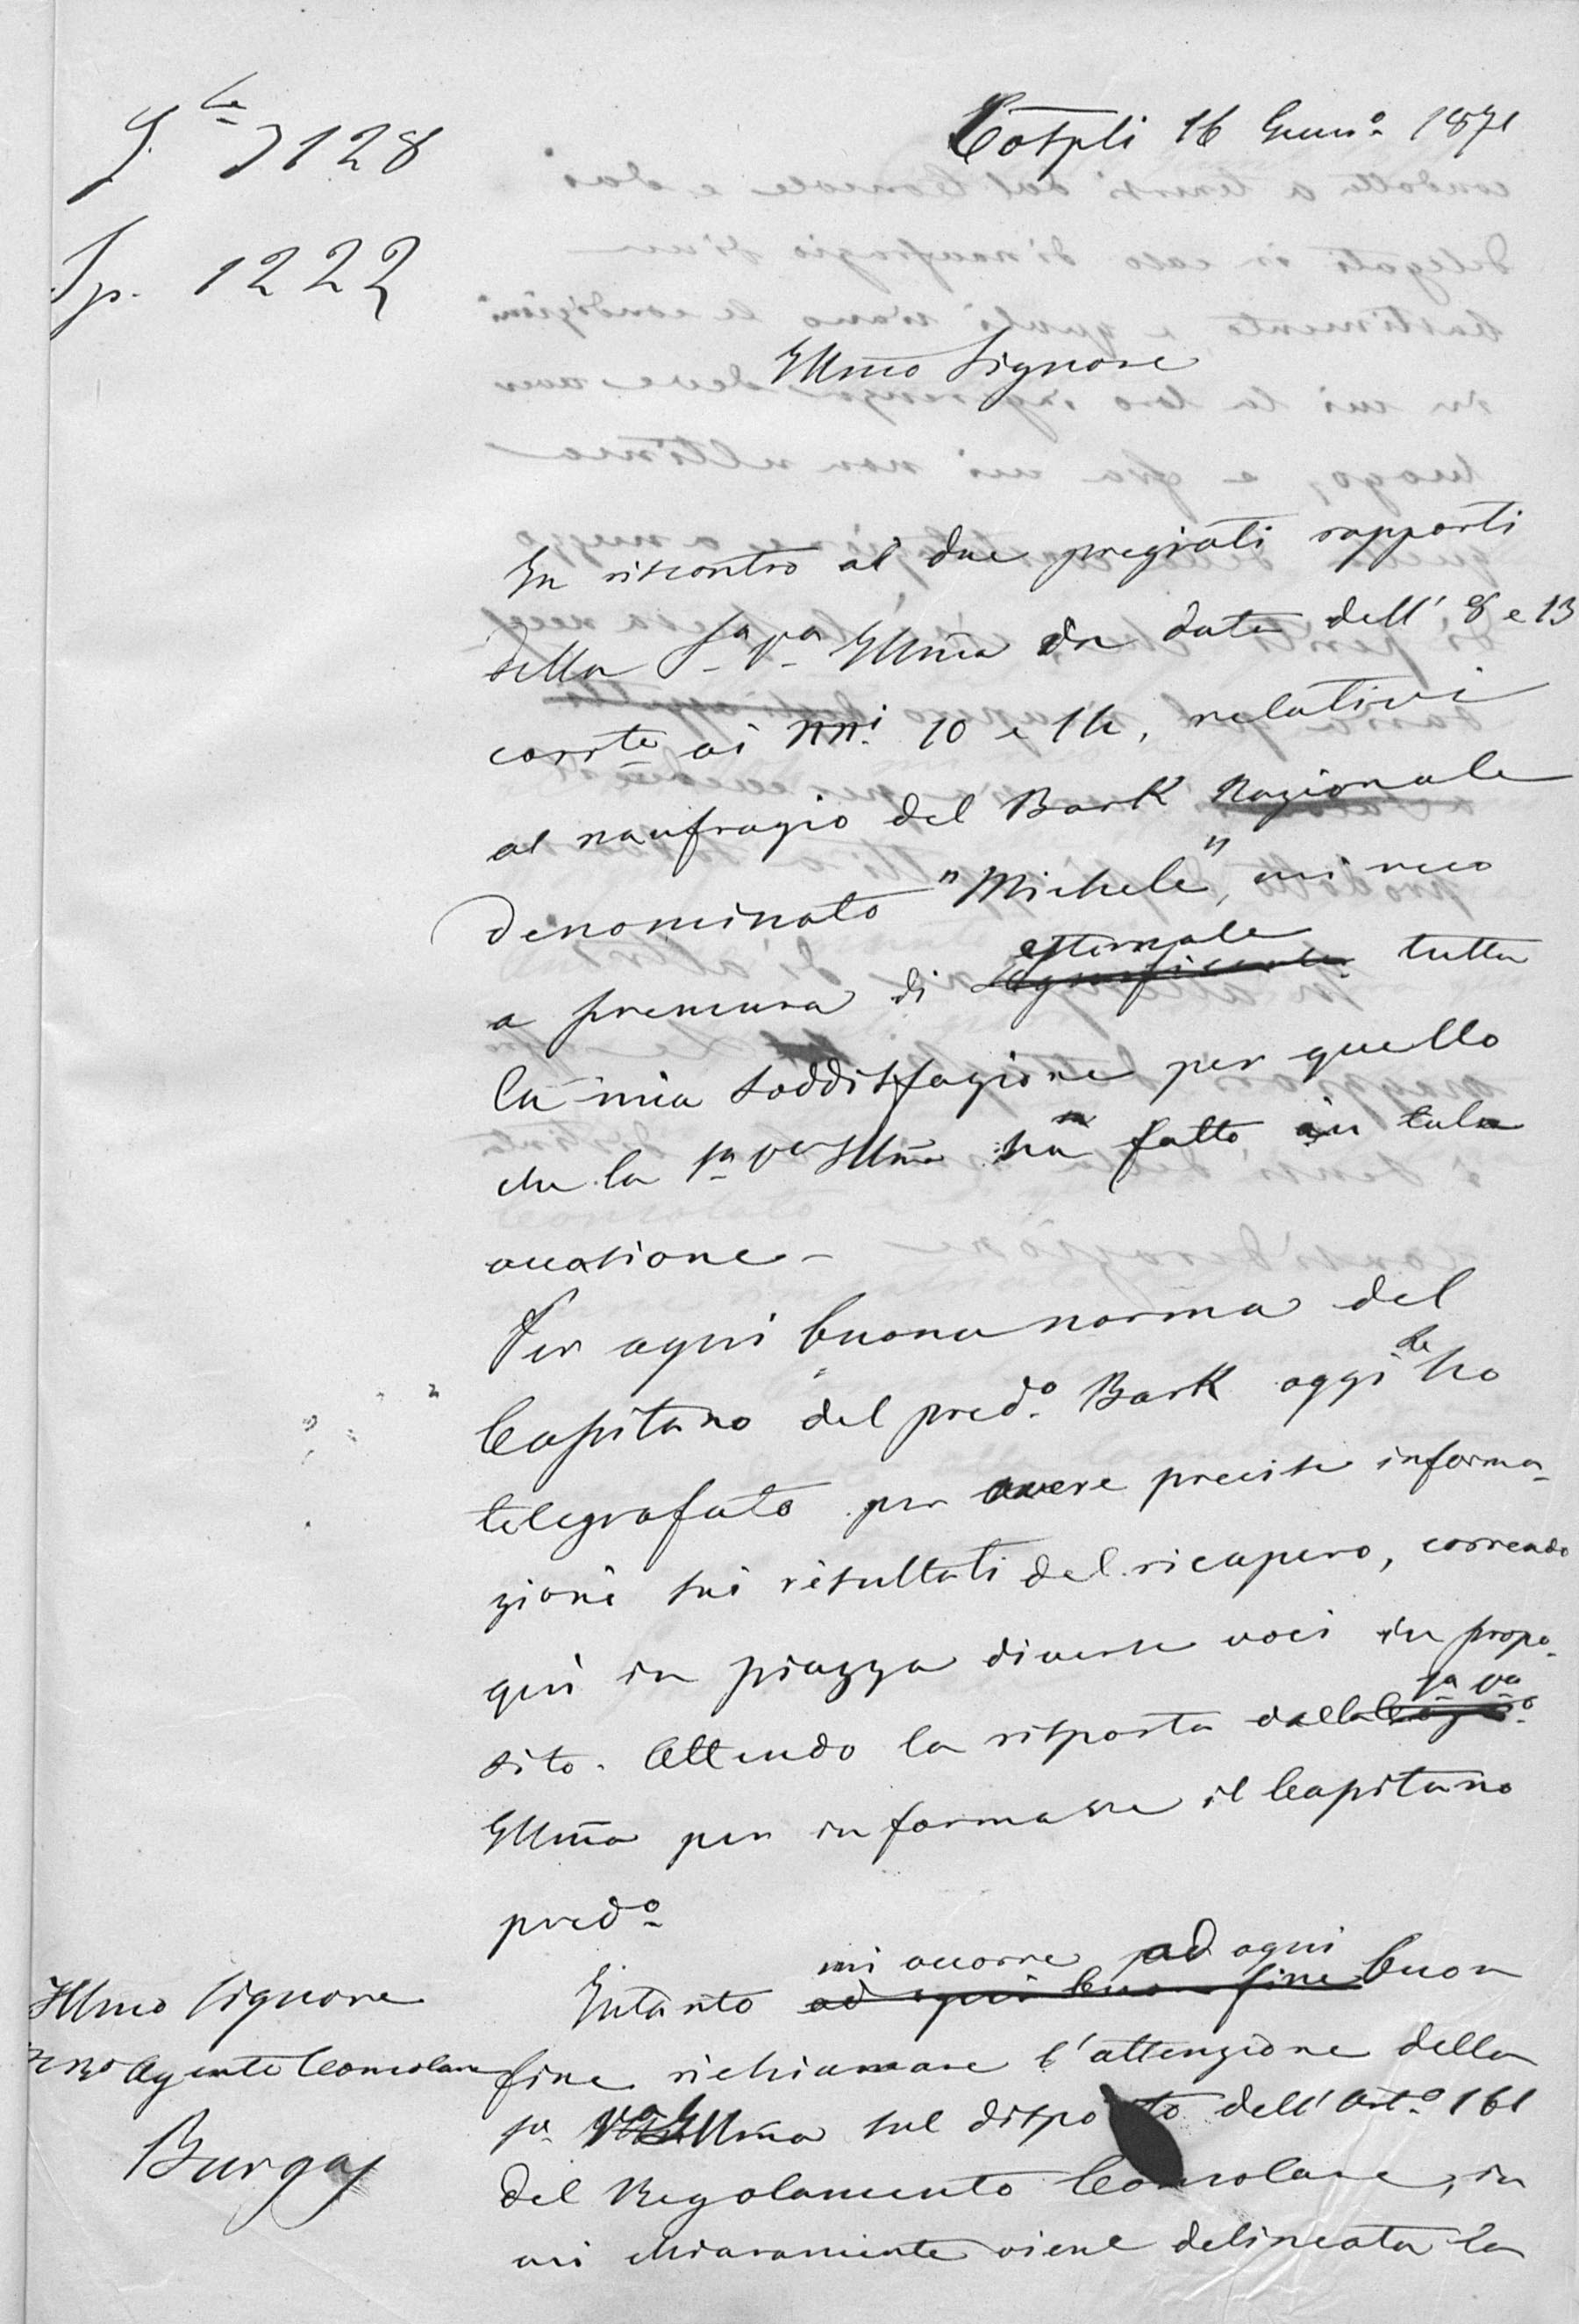 G.le 3128
Sp. 1222
Cospli 16 Genn.o 1871
Illmo Signore
In riscontro ai due pregiati rapporti
della S.a V.a Illma in data dell' 8 e 13
corrte ai nni 10 e 14, relativi
al naufragio del Bark Nazionale
denominato "Michele", mi reco
a premura di esternale tutta
la mia soddisfazione per quello
che la S.a V.a Illma ha fatto in tale
occasione -
Per ogni buona norma del
Capitano del pred.o Bark oggi Le ho
telegrafato per avere precise informa-
zioni sui risultati del ricupero, correndo
qui in piazza diverse voci in propo-
sito. Attendo la risposta della S.a V.a
Illma per informare il Capitano
pred.o
Intanto mi occorre ad ogni buon
fine richiamare l'attenzione della
S.a V.a Illma sul disposto dell'Art.o 161
del Regolamento Consolare, in
cui chiaramente viene delineata la
Illmo Signore
Agente Consolare
Burgas